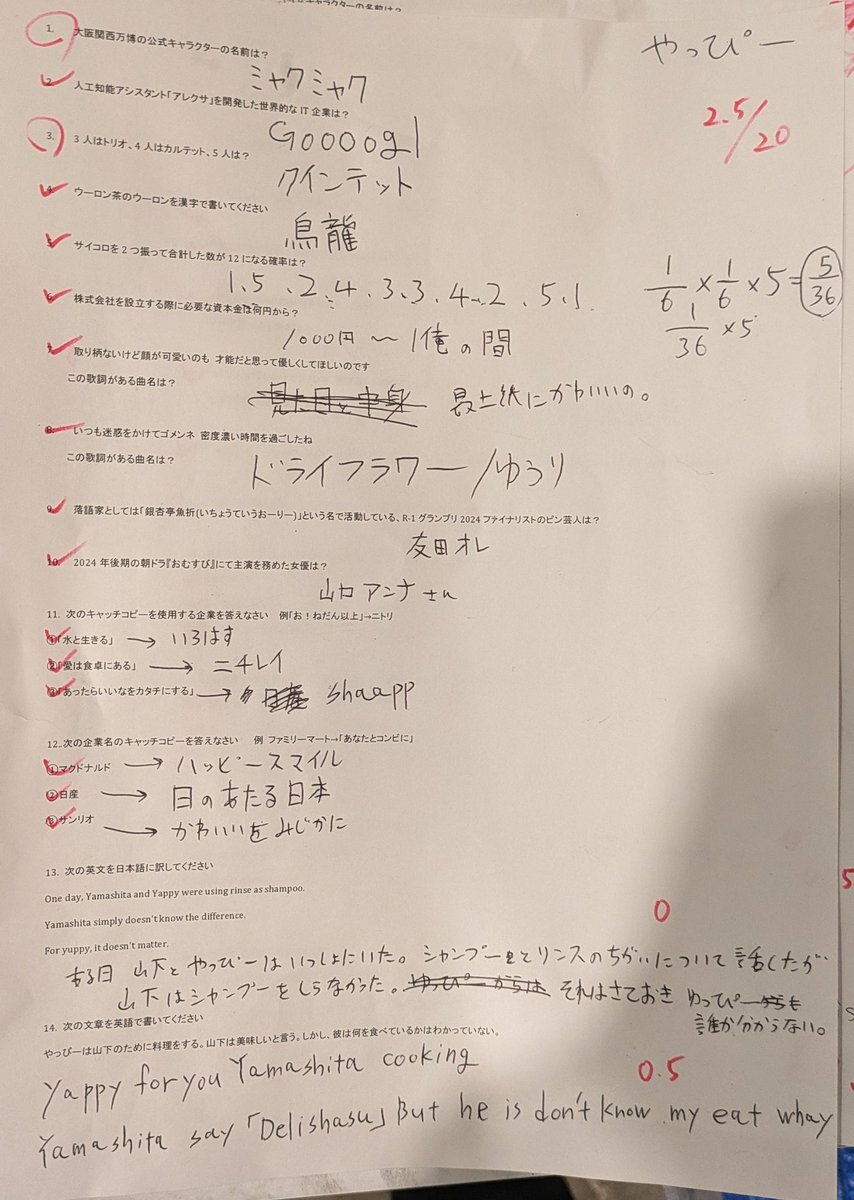 やっぴー
2.5/20
1. 大阪関西万博の公式キャラクターの名前は？
ミャクミャク
2. 人工知能アシスタント「アレクサ」を開発した世界的な IT 企業は？
Goooogl
3. 3 人はトリオ、4 人はカルテット、5 人は？
クインテット
4. ウーロン茶のウーロンを漢字で書いてください
鳥龍
5. サイコロを 2 つ振って合計した数が 12 になる確率は？
1.5 .2.4 .3.3.4.2 .5.1.
1/6 × 1/6 × 5 = 5/36
1/36 ×5
6. 株式会社を設立する際に必要な資本金は何円から？
1000円〜1俺の間
7. 取り柄ないけど顔が可愛いのも 才能だと思って優しくしてほしいのです
この歌詞がある曲名は？
見た目と中身 最上級にかわいいの。
8. いつも迷惑をかけてゴメンネ 密度濃い時間を過ごしたね
この歌詞がある曲名は？
ドライフラワー/ゆうり
9. 落語家としては「銀杏亭魚折(いちょうていうおーりー)」という名で活動している、R-1 グランプリ 2024 ファイナリストのピン芸人は？
友田オレ
10. 2024 年後期の朝ドラ『おむすび』にて主演を務めた女優は？
山口アンナさん
11. 次のキャッチコピーを使用する企業を答えなさい 例「お！ねだん以上」→ニトリ
①「水と生きる」 → いろはす
②「愛は食卓にある」 → ニチレイ
③「あったらいいなをカタチにする」 → shaapp
12..次の企業名のキャッチコピーを答えなさい 例 ファミリーマート→「あなたとコンビに」
①マクドナルド → ハッピースマイル
②日産 → 日のあたる日本
③サンリオ → かわいいをみじかに
13. 次の英文を日本語に訳してください
One day, Yamashita and Yappy were using rinse as shampoo.
Yamashita simply doesn't know the difference.
0
For yuppy, it doesn't matter.
ある日 山下とやっぴーはいっしょにいた。シャンプーとリンスのちがいについて話したが
山下はシャンプーをしらなかった。ゆっぴーからは それはさておき ゆっぴー
誰か分からない。
14. 次の文章を英語で書いてください
やっぴーは山下のために料理をする。山下は美味しいと言う。しかし、彼は何を食べているかはわかっていない。
0.5
Yappy for you Yamashita cooking
Yamashita say「Delishasu」But he is don't know my eat whay